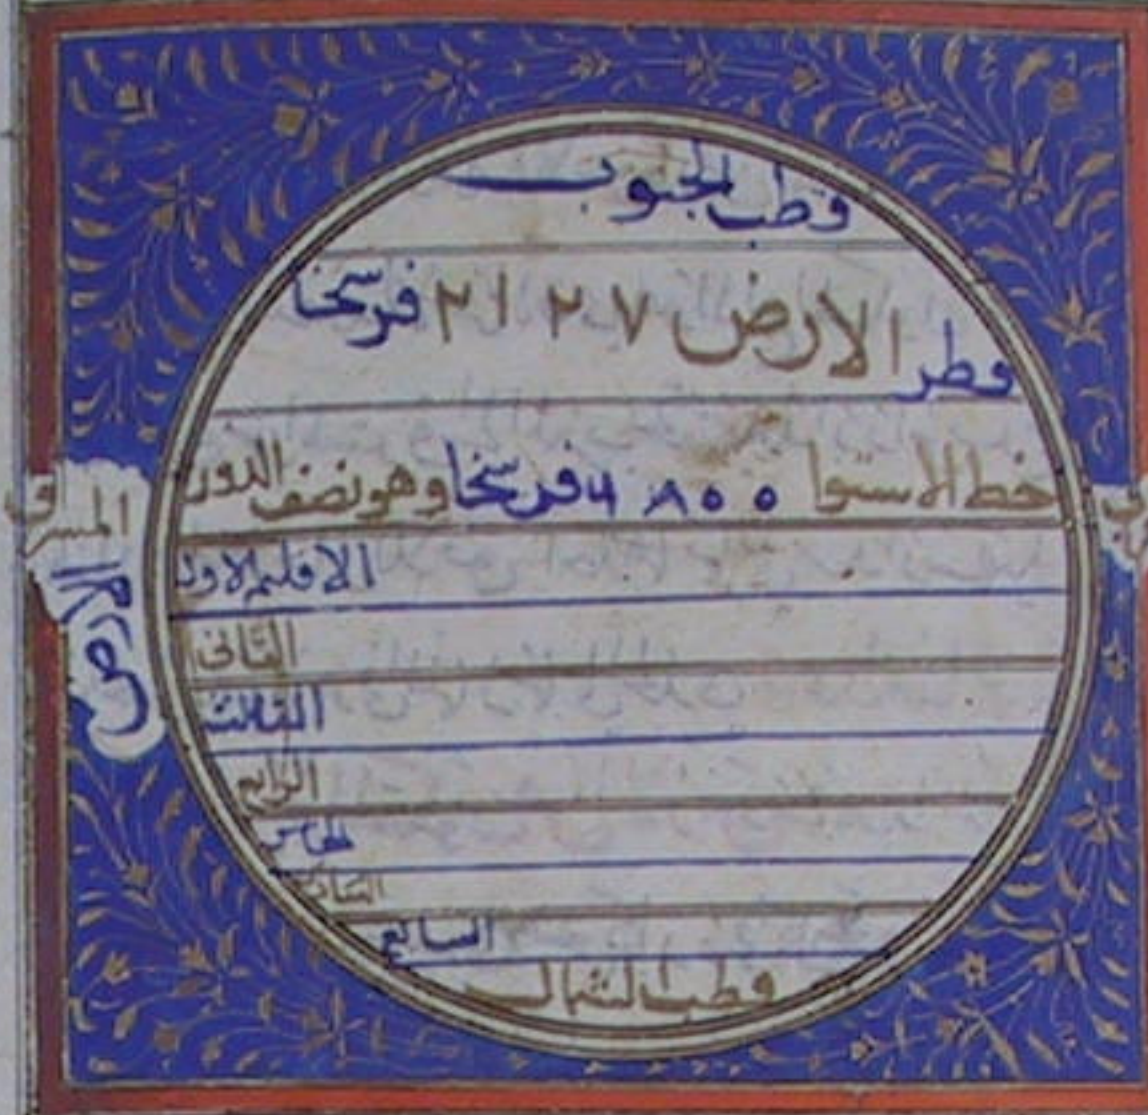 قطب الجنوب
قطر الارض ٢١٢٧ فرسخا
خط الاستوا ٦٨٠٠ فرسخا وهو نصف الدور
الاقليم الاول
الثانى
الثالث
الرابع
الخامس
السادس
السابع
قطب الشمال
المشرق
الارض